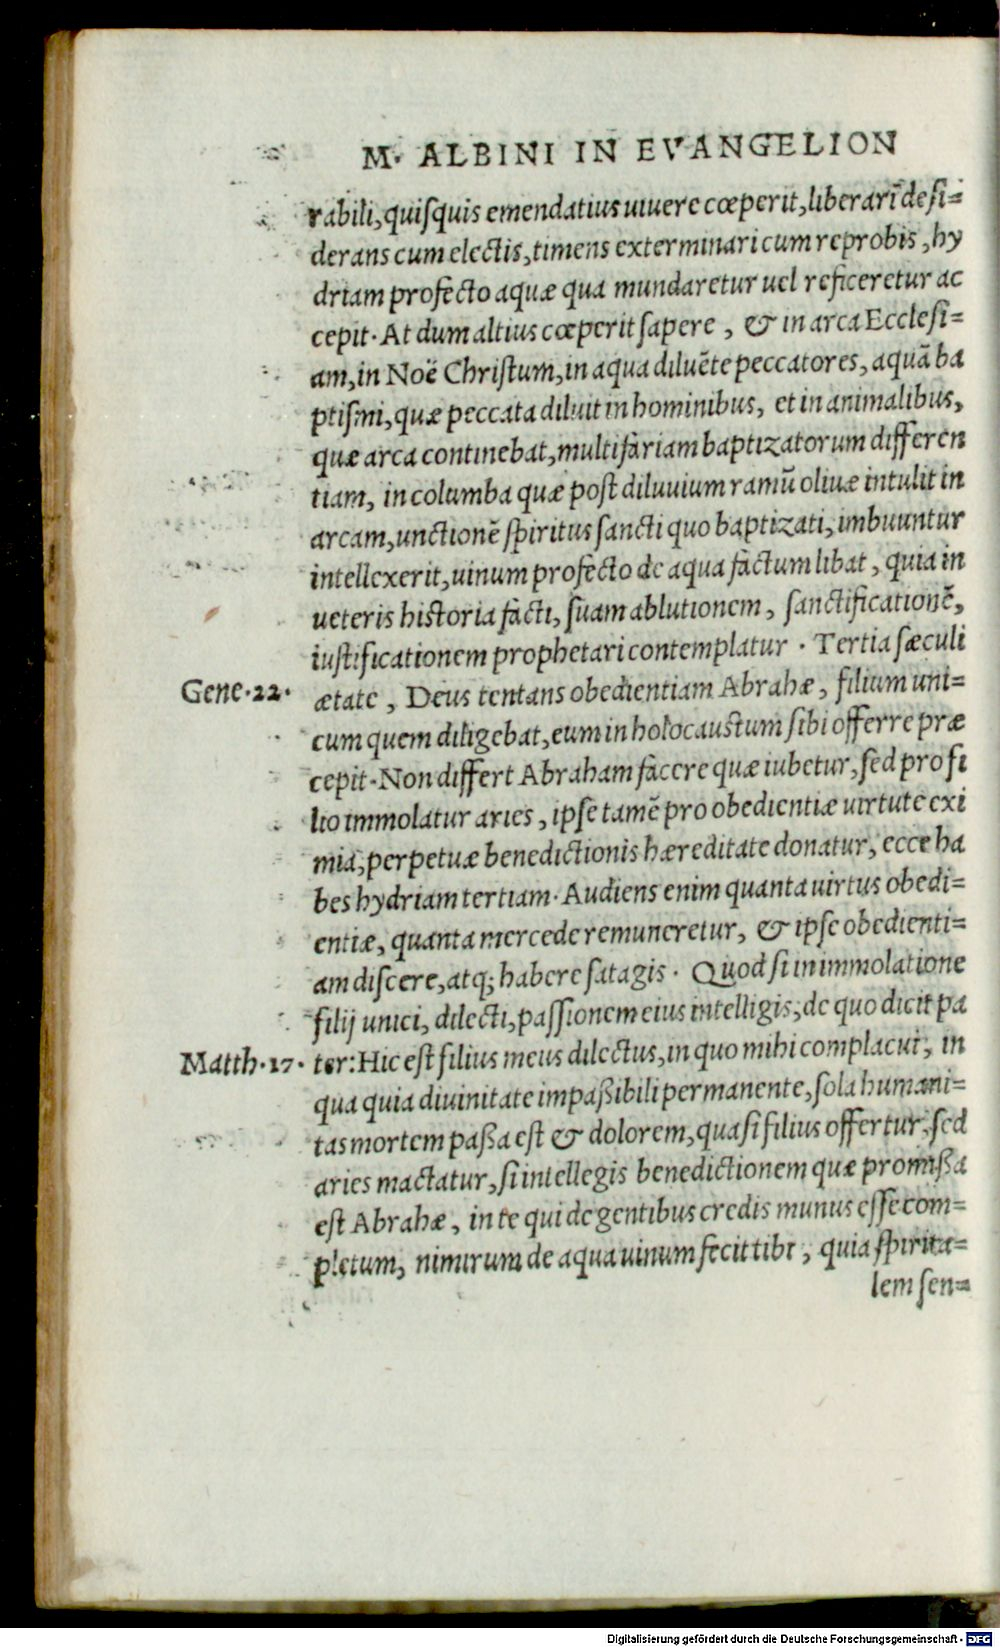 M. ALBINI IN EVANGELION
rabili, quiſquis emendatius uiuere cœperit, liberari deſi=
derans cum electis, timens exterminari cum reprobis, hy
driam profecto aquæ qua mundaretur uel reficeretur ac
cepit. At dum altius cœperit ſapere, & in arca Eccleſi=
am, in Noë Chriſtum, in aqua diluẽte peccatores, aquã ba
ptiſmi, quæ peccata diluit in hominibus, et in animalibus,
quæ arca continebat, multifariam baptizatorum differen
tiam, in columba quæ poſt diluuium ramũ oliuæ intulit in
arcam, unctionẽ ſpiritus ſancti quo baptizati, imbuuntur
intellexerit, uinum profecto de aqua factum libat, quia in
ueteris historia facti, ſuam ablutionem, ſanctificationẽ,
iuſtificationem prophetari contemplatur. Tertia ſæculi
Gene.22.
ætate, Deus tentans obedientiam Abrahæ, filium uni=
cum quem diligebat, eum in holocaustum ſibi offerre præ
cepit. Non differt Abraham facere quæ iubetur, ſed pro fi
lio immolatur aries, ipſe tamẽ pro obedientiæ uirtute exi
mia, perpetuæ benedictionis hæreditate donatur, ecce ha
bes hydriam tertiam. Audiens enim quanta uirtus obedi=
entiæ, quanta mercede remuneretur, & ipſe obedienti=
am diſcere, atq; habere ſatagis. Quod ſi in immolatione
filij unici, dilecti, paſſionem eius intelligis, de quo dicit pa
Matth.17.
ter: Hic eſt filius meus dilectus, in quo mihi complacui, in
qua quia diuinitate impaßibili permanente, ſola humani=
tas mortem paßa eſt & dolorem, quaſi filius offertur, ſed
aries mactatur, ſi intellegis benedictionem quæ promißa
eſt Abrahæ, in te qui de gentibus credis munus eſſe com=
pletum, nimirum de aqua uinum fecit tibi, quia ſpirita=
lem ſen=
Digitalisierung gefördert durch die Deutsche Forschungsgemeinschaft - DFG